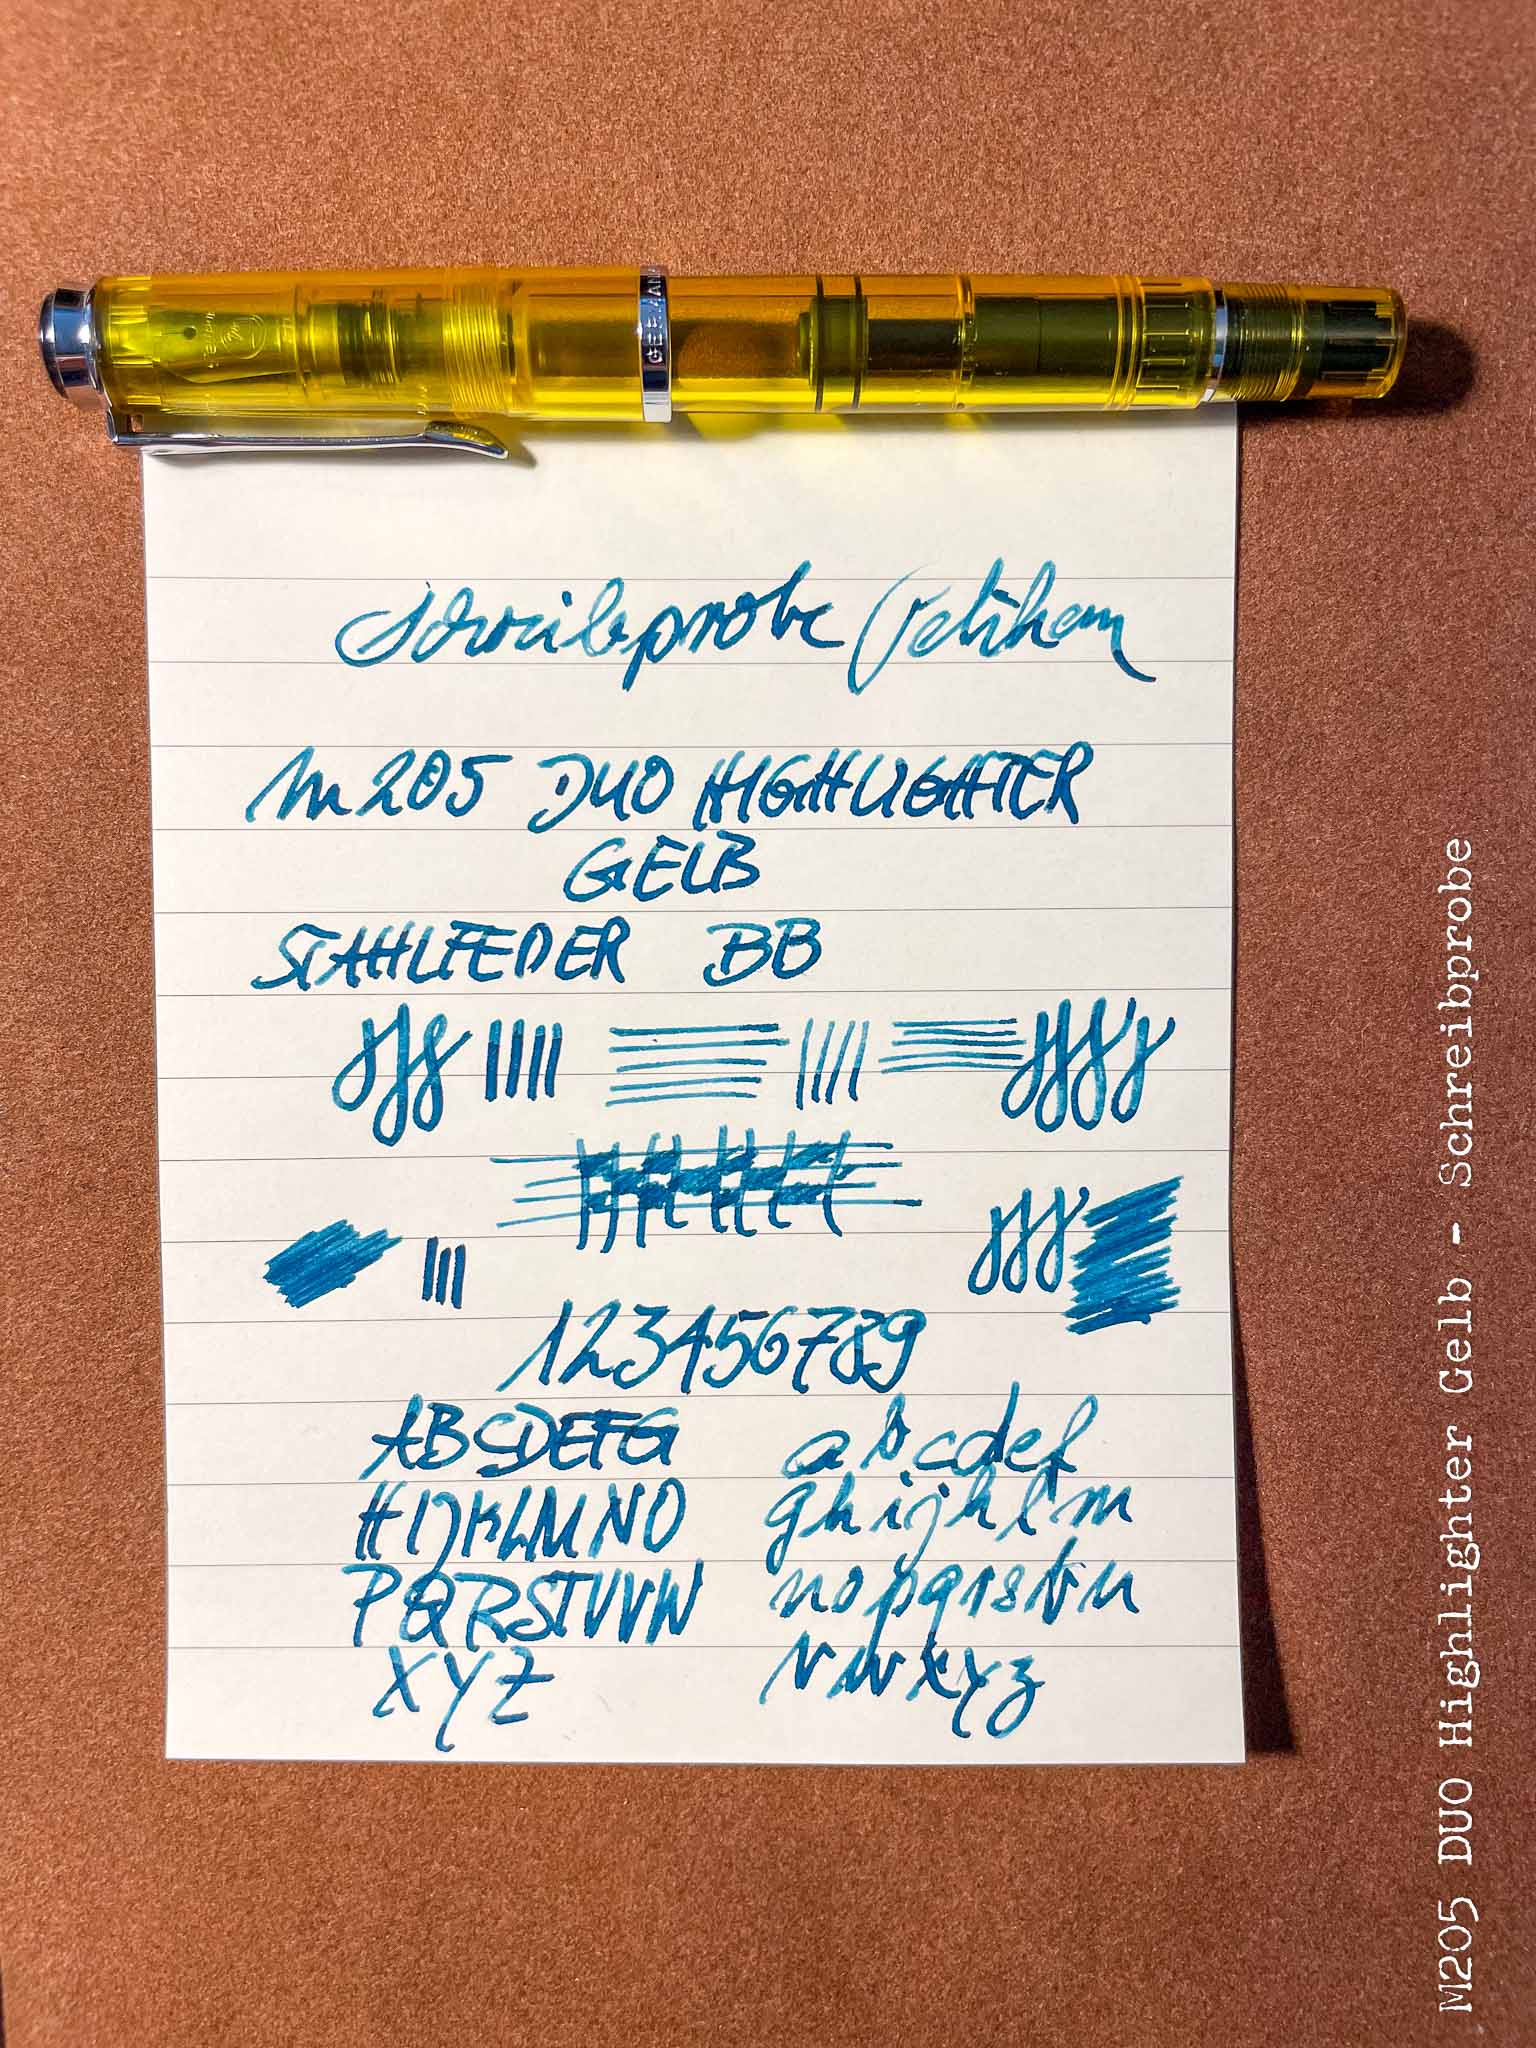 GERMANY
Schreibprobe Pelikan
M205 DUO HIGHLIGHTER
GELB
STAHLFEDER BB
123456789
ABCDEFG abcdef
HIJKLMNO ghijklm
PQRSTUVW nopqrstu
XYZ vwxyz
M205 DUO Highlighter Gelb - Schreibprobe